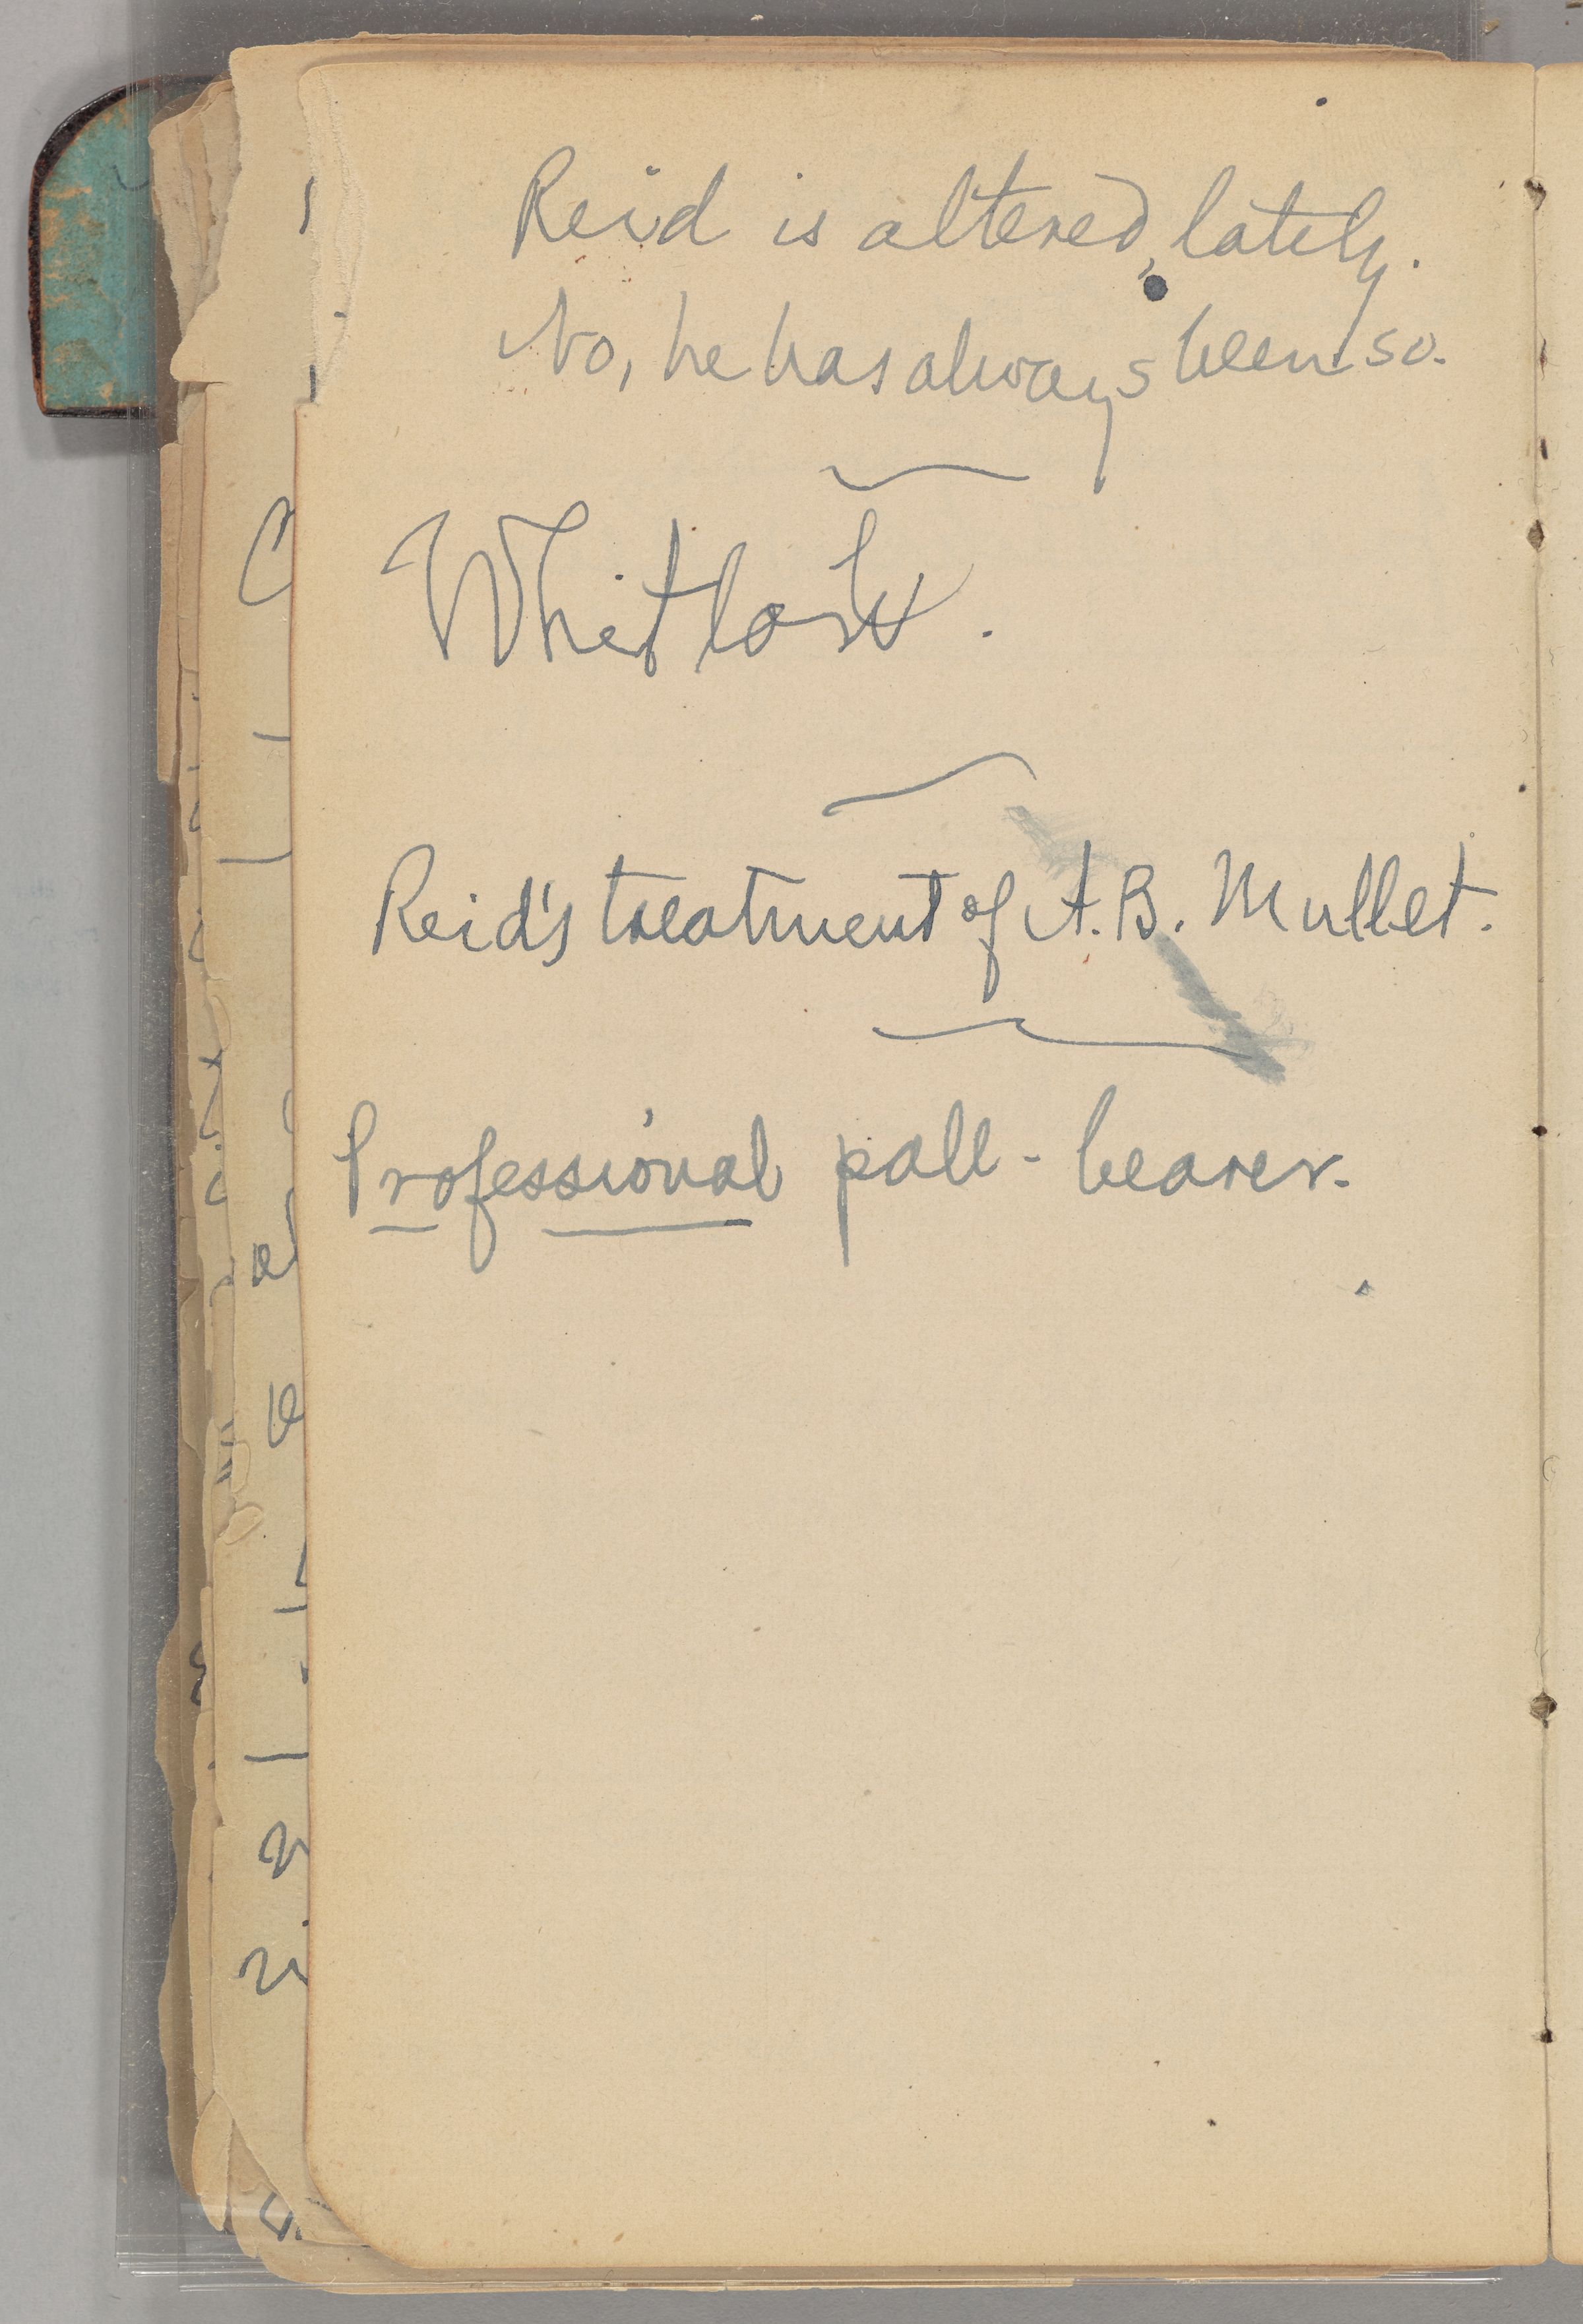 Reid is altered, lately.
No, he has always been so.
Reid's treatment of A. B. Mullet.
Professional pall-bearer.